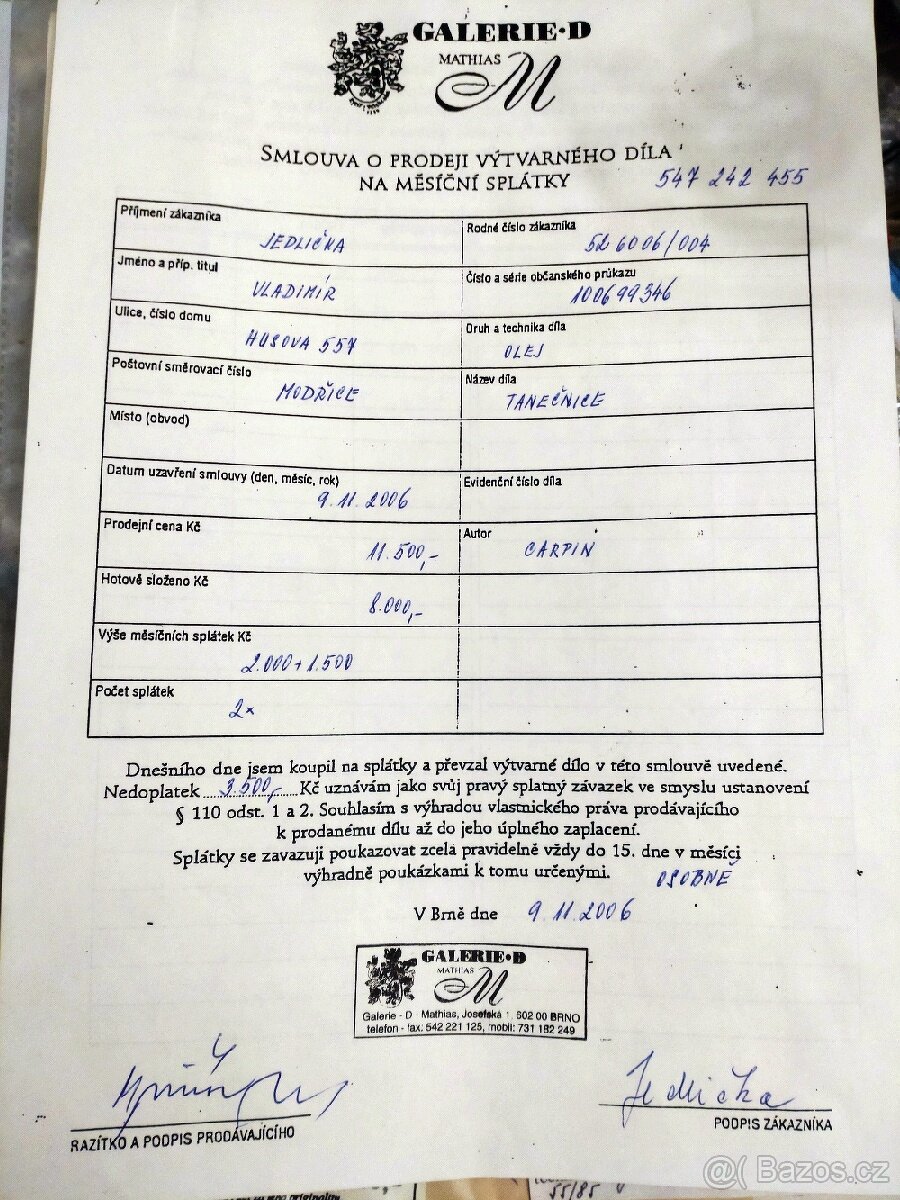 GALERIE·D
MATHIAS
M
SMLOUVA O PRODEJI VÝTVARNÉHO DÍLA
NA MĚSÍČNÍ SPLÁTKY
547 242 455
Příjmení zákazníka
JEDLIČKA
Rodné číslo zákazníka
526006/004
Jméno a příp. titul
VLADIMÍR
Číslo a série občanského průkazu
100699346
Ulice, číslo domu
HUSOVA 557
Druh a technika díla
OLEJ
Poštovní směrovací číslo
MODŘICE
Název díla
TANEČNICE
Místo (obvod)
Datum uzavření smlouvy (den, měsíc, rok)
9.11.2006
Evidenční číslo díla
Prodejní cena Kč
11.500,-
Autor
CARPIN
Hotově složeno Kč
8.000,-
Výše měsíčních splátek Kč
2.000+1.500
Počet splátek
2x
Dnešního dne jsem koupil na splátky a převzal výtvarné dílo v této smlouvě uvedené.
Nedoplatek 3.500,- Kč uznávám jako svůj pravý splatný závazek ve smyslu ustanovení
§ 110 odst. 1 a 2. Souhlasím s výhradou vlastnického práva prodávajícího
k prodanému dílu až do jeho úplného zaplacení.
Splátky se zavazuji poukazovat zcela pravidelně vždy do 15. dne v měsíci
výhradně poukázkami k tomu určenými. OSOBNĚ
V Brně dne 9.11.2006
GALERIE·D
MATHIAS
M
Galerie - D Mathias, Josefská 602 00 BRNO
telefon - fax: 542 221 125, mobil: 731 182 249
Jedlička
RAZÍTKO A PODPIS PRODÁVAJÍCÍHO
PODPIS ZÁKAZNÍKA
55/85
@( Bazos.cz